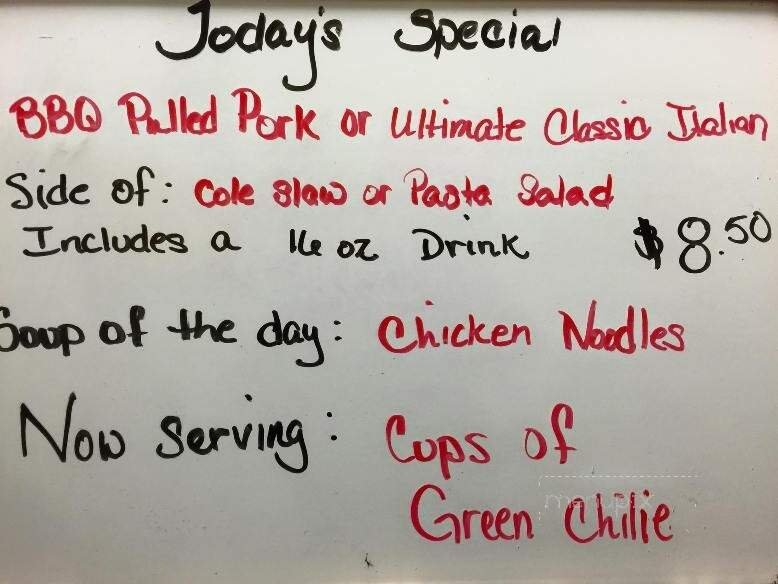 Today's Special
BBQ Pulled Pork or Ultimate Classic Italian
Side of: Cole Slaw or Pasta Salad
Includes a 16 oz Drink $8.50
Soup of the day: Chicken Noodles
Now Serving: Cups of
Green Chilie
menupix